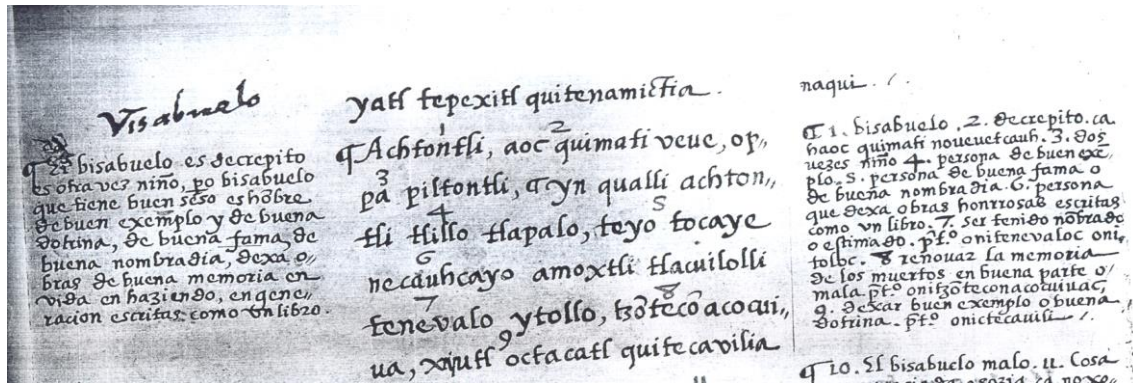 Visabuelo
¶ El bisabuelo es decrepito
es otra vez niño, po bisabuelo
que tiene buen seso es hõbre
de buen exemplo y de buena
dotrina, de buena fama, de
buena nombradia, dexa o,,
bras de buena memoria en
vida en haziendo, en gene,,
racion escritas como vn libro.
yatl tepexitl quitenamictia.
1 2
¶ Achtontli, aoc quimati veue, op,,
3
pa piltontli, ¶ yn qualli achton,,
4 5
tli tlillo tlapalo, teyo tocaye
6
necauhcayo amoxtli tlacuilolli
7 8
tenevalo ytollo, tzõtecõ acoqui,,
9
ua, xiutl octacatl quitecavilia
11
naqui. /.
¶ 1. bisabuelo. 2. decrepito. ca
haoc quimati noueuetcauh. 3. dos
vezes niño 4. persona de buen exẽ
plo. 5. persona de buena fama o
de buena nombradia. 6. persona
que dexa obras honrrosas escritas
como vn libro. 7. ser tenido nõbrado
o estimado. pt.º onitenevaloc oni,,
toloc. 8 renouar la memoria
de los muertos en buena parte o
mala pt.º onitzõteconacoquiuac,
9. dexar buen exemplo o buena
dotrina. pt.º onictecauili /.
¶ 10. El bisabuelo malo. 11. Cosa